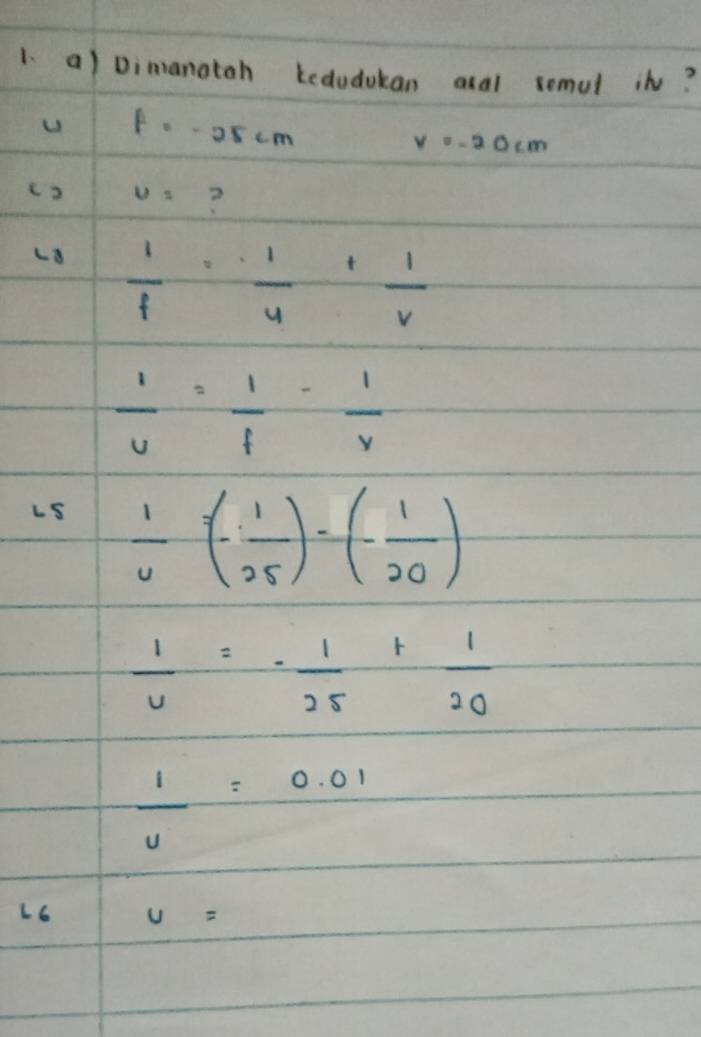 1. a) Dimanatah kedudukan asal semut itu ?
L1 f = -25 cm v = -20cm
L2 u = ?
L3 1/f = 1/u + 1/v
1/u = 1/f - 1/v
L5 1/u = (-1/25) - (-1/20)
1/u = -1/25 + 1/20
1/u = 0.01
L6 u =